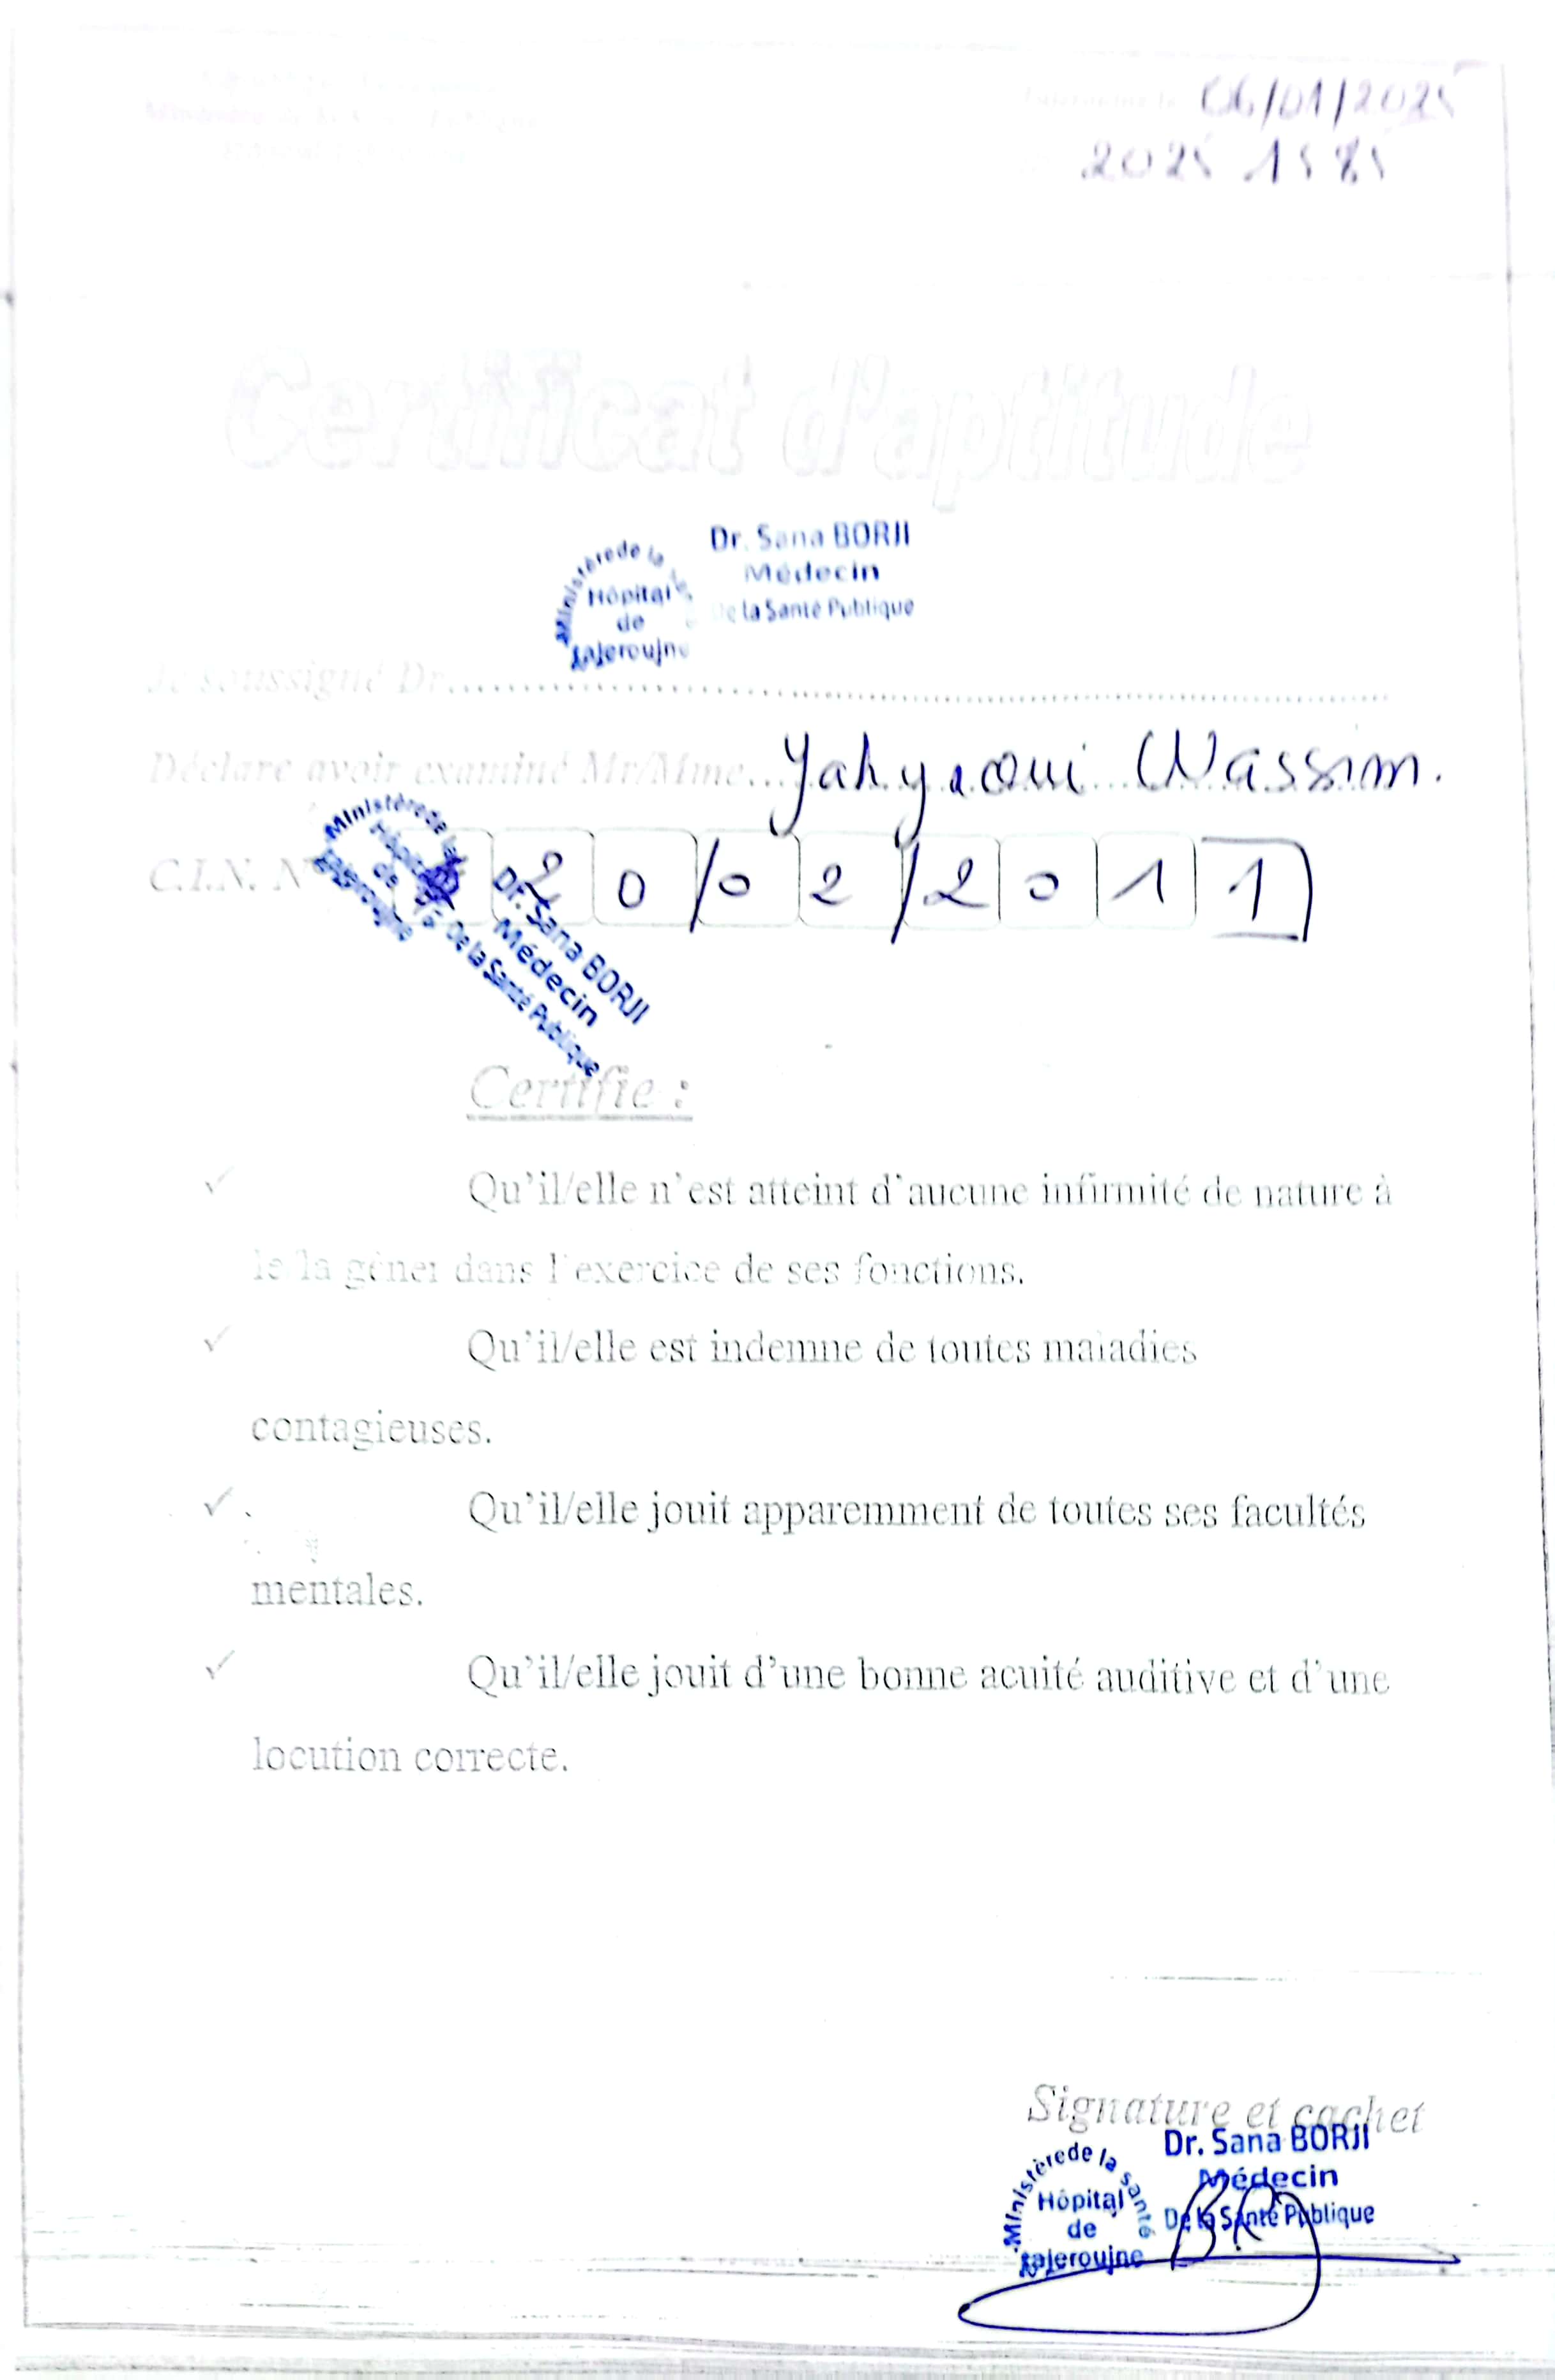 06/01/2025
2025 1585
Certificat d'aptitude
Dr. Sana BORJI
Médecin
De la Santé Publique
Ministère de la
Hôpital
de
Tajerouine
Je soussigné Dr
Déclare avoir examiné Mr/Mme... Yahyaoui Wassim.
C.I.N. N° 20/02/2011
Ministère de la
Hôpital
de
Tajerouine
Dr. Sana BORJI
Médecin
De la Santé Publique
Certifie :
✓ Qu'il/elle n'est atteint d'aucune infirmité de nature à
le/la gêner dans l'exercice de ses fonctions.
✓ Qu'il/elle est indemne de toutes maladies
contagieuses.
✓ Qu'il/elle jouit apparemment de toutes ses facultés
mentales.
✓ Qu'il/elle jouit d'une bonne acuité auditive et d'une
locution correcte.
Signature et cachet
Dr. Sana BORJI
Médecin
De la Santé Publique
Ministère de la santé
Hôpital
de
Tajerouine